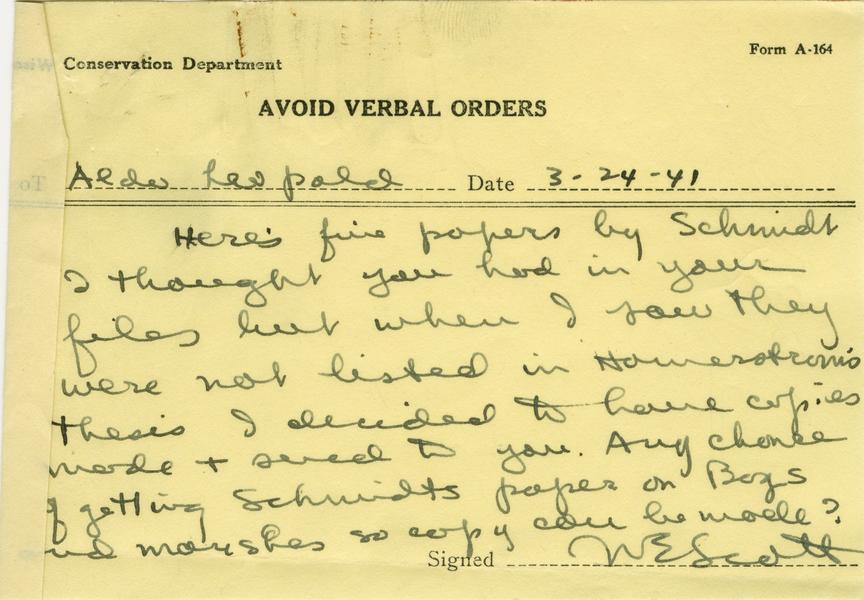 Form A-164
Conservation Department
AVOID VERBAL ORDERS
Aldo Leopold Date 3-24-41
Here's five papers by Schmidt
I thought you had in your
files but when I saw they
were not listed in Hamerstrom's
thesis I decided to have copies
made + send to you. Any chance
of getting Schmidts paper on Bogs
and marshes so copy can be made?
Signed W E Scott
To